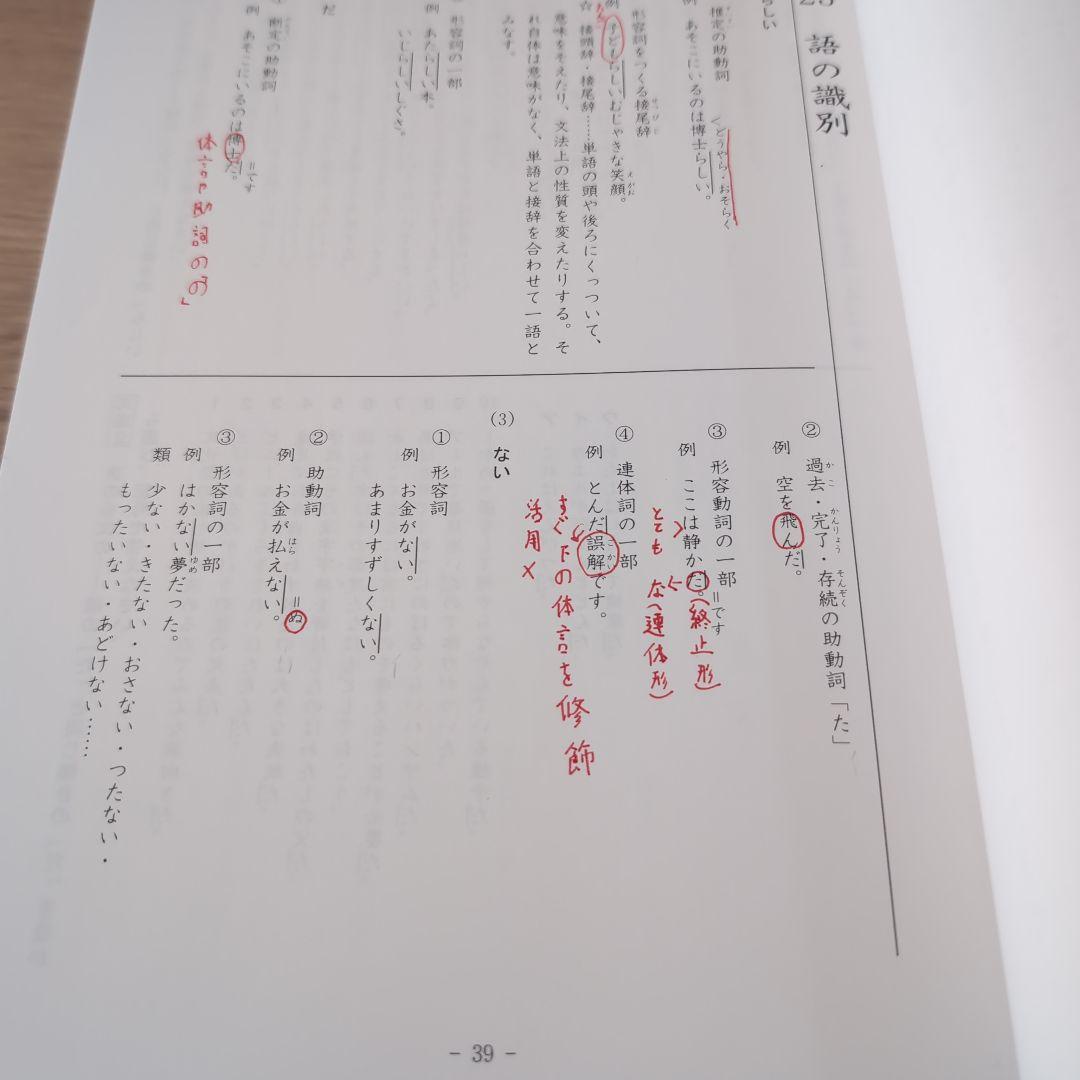 語の識別
らしい
推定の助動詞
<どうやら・おそらく
例 あそこにいるのは博士らしい。
形容詞をつくる接尾辞
せつびじ
例 子どもらしいむじゃきな笑顔。
えがお
☆ 接頭辞・接尾辞……単語の頭や後ろにくっついて、
意味をそえたり、文法上の性質を変えたりする。そ
れ自体は意味がなく、単語と接辞を合わせて一語と
みなす。
③ 形容詞の一部
例 あたらしい本。
いじらしいしぐさ。
だ
断定の助動詞
例 あそこにいるのは博士だ。
=です
体言や助詞の「の」
② 過去・完了・存続の助動詞「た」
かこ
かんりょう
そんぞく
例 空を飛んだ。
③ 形容動詞の一部
=です
例 ここは静かだ。(終止形)
とても
な(連体形)
④ 連体詞の一部
例 とんだ誤解です。
ごかい
すぐ下の体言を修飾
活用×
(3) ない
① 形容詞
例 お金がない。
あまりすずしくない。
② 助動詞
=ぬ
例 お金が払えない。
はら
③ 形容詞の一部
例 はかない夢だった。
ゆめ
類 少ない・きたない・おさない・つたない・
もったいない・あどけない……
- 39 -